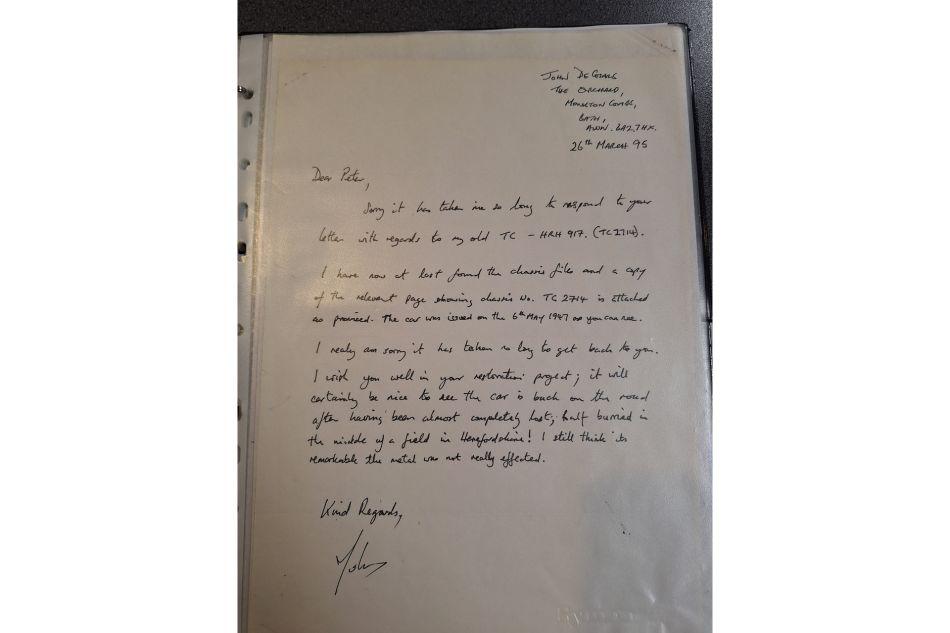 JOHN DE
THE ORCHARD,
MONKTON COMBE,
BATH,
AVON. BA2 7HX.
26th MARCH 95
Dear Peter,
Sorry it has taken me so long to respond to your
letter with regards to my old TC - HRH 917. (TC2714).
I have now at last found the chassis files and a copy
of the relevant page showing chassis No. TC 2714 is attached
as promised. The car was issued on the 6th MAY 1947 as you can see.
I realy am sorry it has taken so long to get back to you.
I wish you well in your restoration project; it will
certainly be nice to see the car is back on the road
after having been almost completely lost; half burried in
the middle of a field in Herefordshire! I still think its
remarkable the metal was not really effected.
Kind Regards,
John